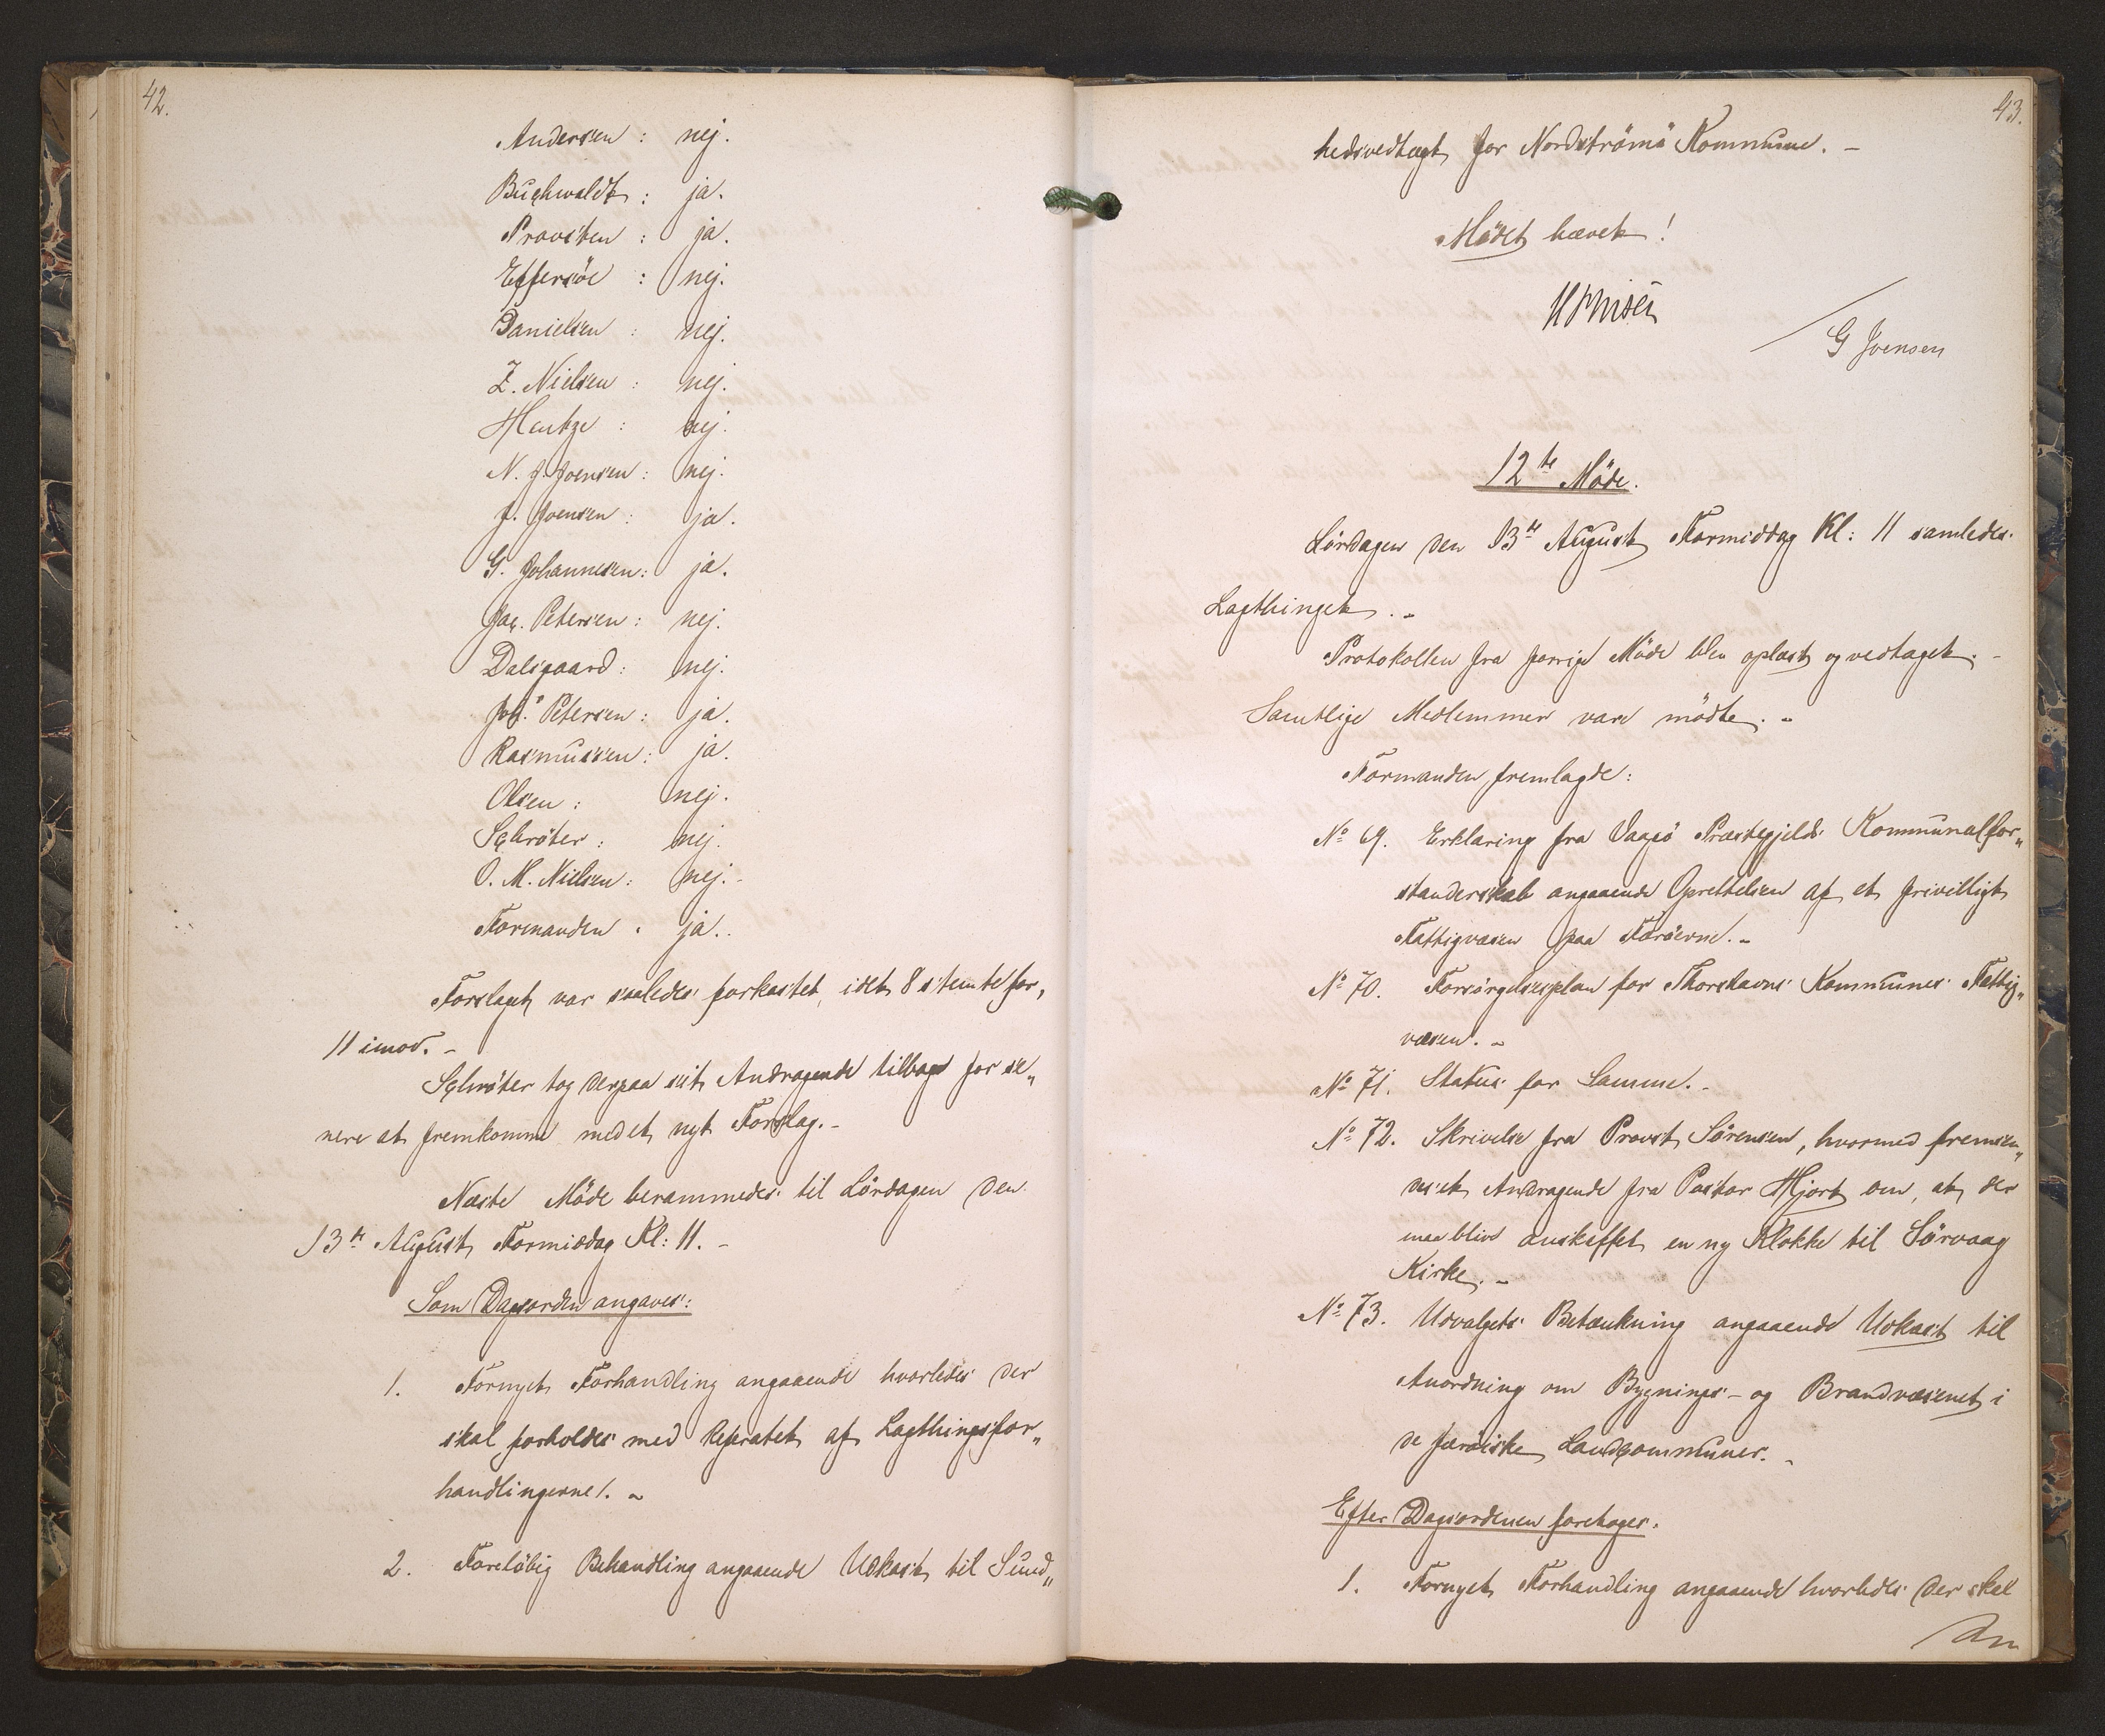 42.
Andersen : nej.
Buchwaldt : ja.
Provsten : ja.
Effersöe : nej.
Danielsen : nej.
Z. Nielsen : nej.
Hentze : nej.
N. J. Joensen : nej.
J. Joensen : ja.
G. Johannesen : ja.
Jac. Petersen : nej.
Dalsgaard : nej.
Joh.s Petersen : ja.
Rasmussen : ja.
Olsen : nej.
Schröter : nej.
O. M. Nielsen : nej. -
Formanden : ja..
Forslaget var saaledes forkastet, idet 8 stemte for,
11 imod. -
Schröter tog derpaa sit Andragende tilbage for se„
nere at fremkomme med et nyt Forslag. -
Næste Möde berammedes til Lördagen den
13de August, Formiddag Kl: 11. -
Som Dagsorden angaves:
1. Fornyet Forhandling angaaende hvorledes der
skal forholdes med Referatet af Lagthingsfor„
handlingerne /. -
2. Foreløbig Behandling angaaende Udkast til Sund„
43.
hedsvedtægt for Nordströmö Kommune. -
Mödet hævet!
G Joensen
12te Möde.
Lördagen den 13de August, Formiddag Kl: 11 samledes
Lagthinget. -
Protokollen fra forrige Möde blev oplæst og vedtaget. -
Samtlige Medlemmer vare mödte. -
Formanden fremlagde:
No 69. Erklæring fra Vaagö Præstegjelds Kommunalfor„
standerskab angaaende Oprettelsen af et frivilligt
Fattigvæsen paa Færöerne. -
No 70. Forsörgelsesplan for Thorshavns Kommunes Fattig„
væsen. -
No 71. Status for Samme. -
No 72. Skrivelse fra Provst Sörensen, hvormed fremsen„
des et Andragende fra Pastor Hjort om, at der
maa blive anskaffet en ny Klokke til Sörvaag
Kirke. -
No 73. Udvalgets Betænkning angaaende Udkast til
Anordning om Bygnings- og Brandvæsenet i
de færöiske Landcommuner. -
Efter Dagsordenen foretoges:
1. Fornyet Forhandling angaaende hvorledes der skal